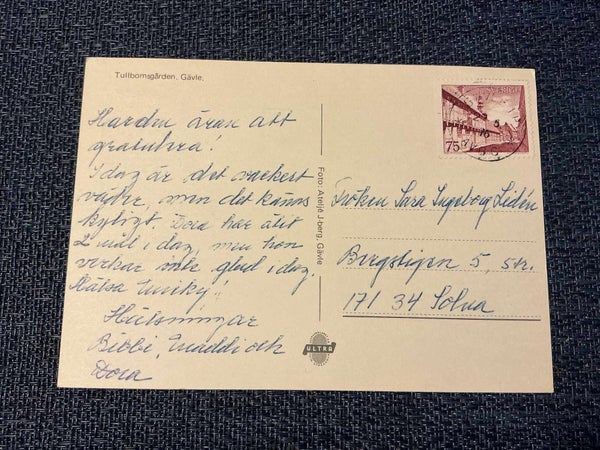 Tullbomsgården, Gävle.
Harden äran att
gratulera!
I dag är det vackert
väder, men det känns
kyligt. Dora har ätit
2 mål i dag, men hon
verkar inte glad i dag.
Hälsa
Hälsningar
Bibbi, Maddi och
Dora
Foto: Ateljé J-berg, Gävle
ULTRA
SVERIGE
75
Fröken Sara Ingeborg Lidén
Bergstigen 5, 
171 34 Solna